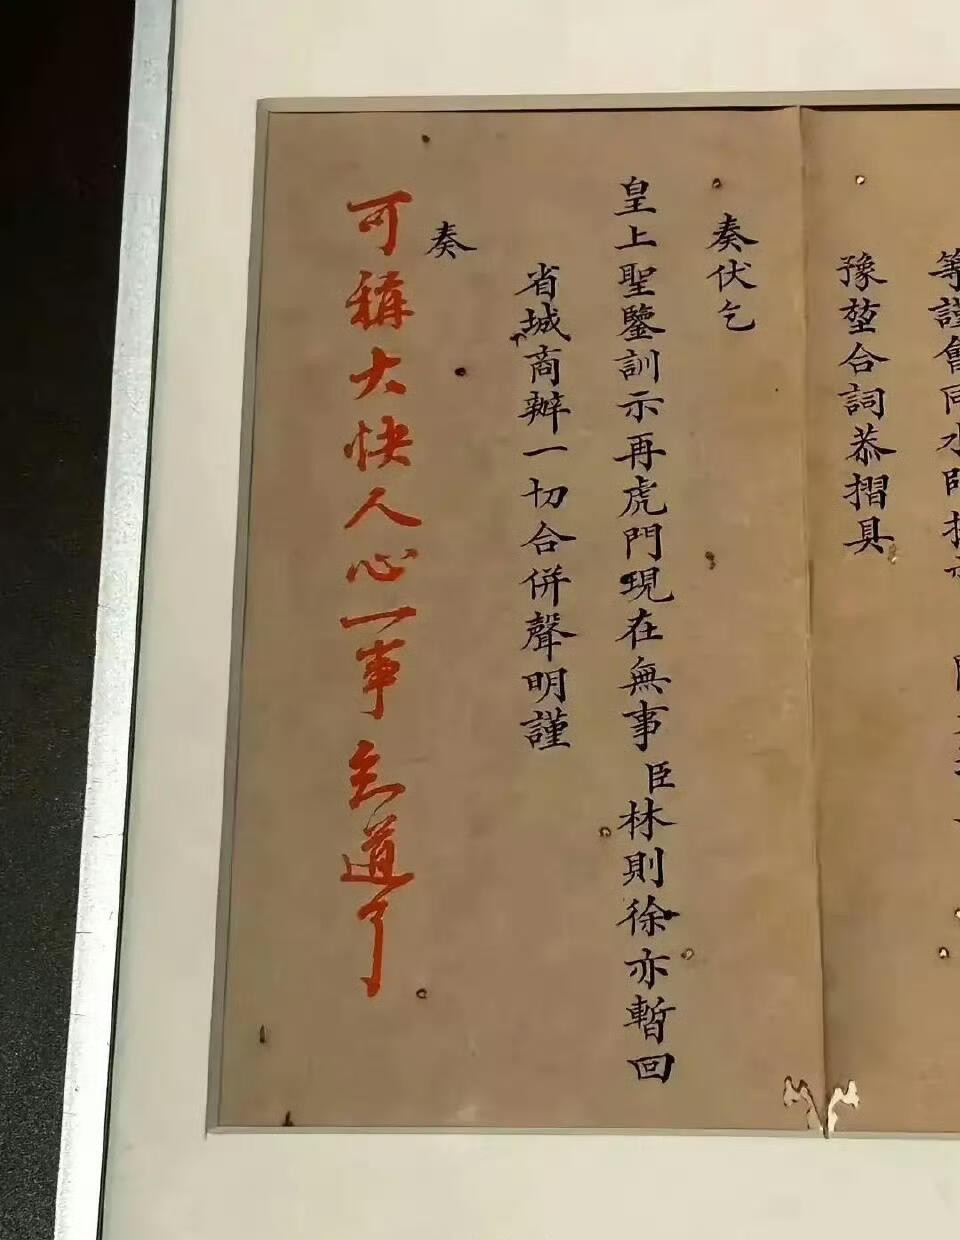 等謹會同水師提
豫堃合詞恭摺具
奏伏乞
皇上聖鑒訓示再虎門現在無事臣林則徐亦暫回
省城商辦一切合併聲明謹
奏
可稱大快人心一事知道了